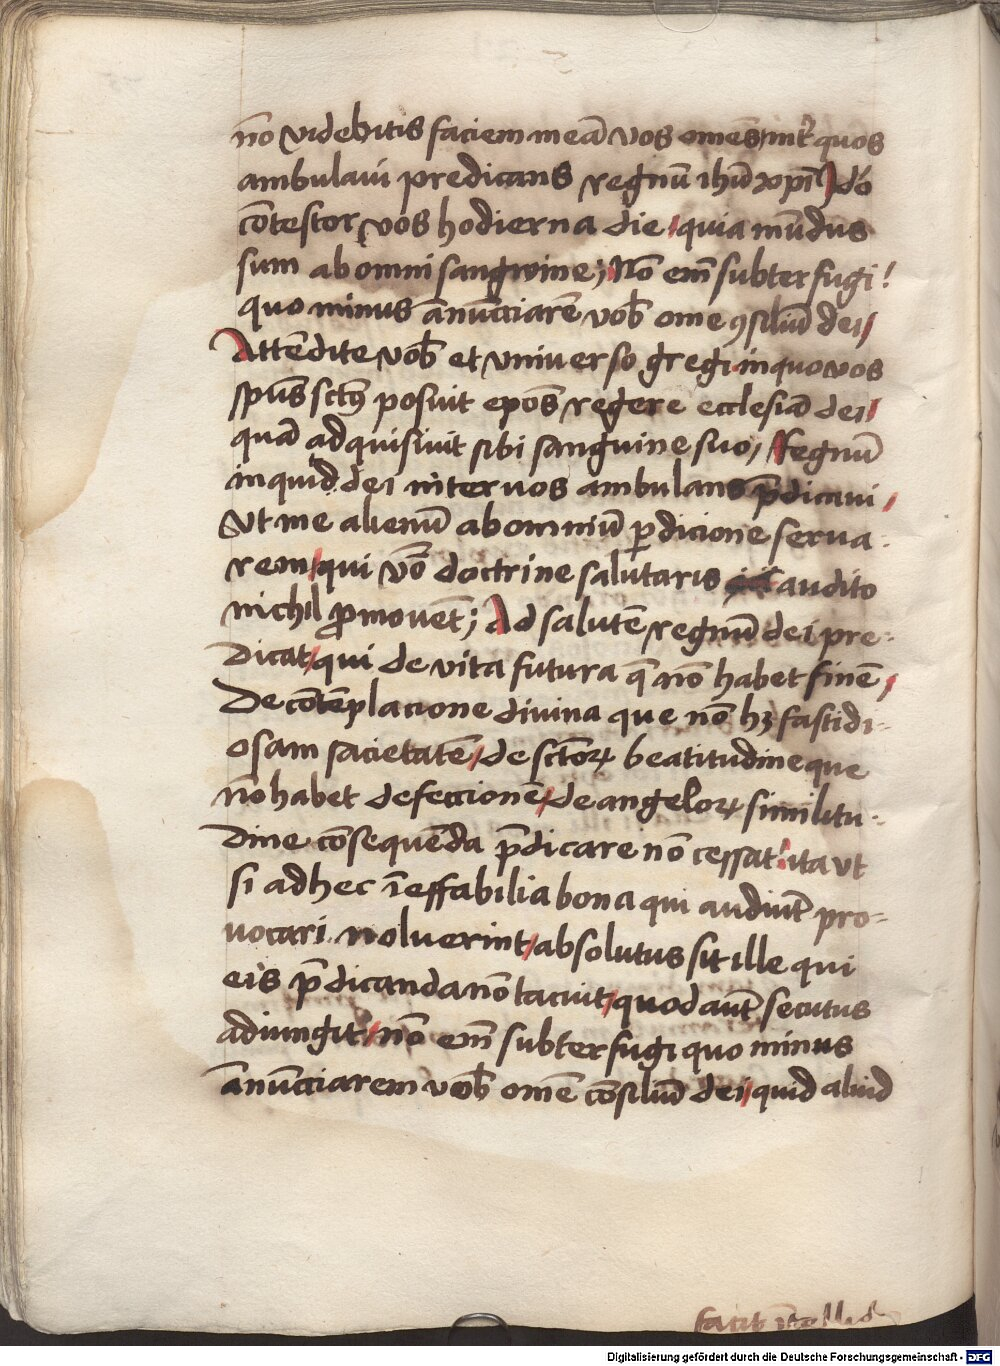 nō videbitis faciem meā vos omēs int̄ quos
ambulavi predicans regnū ihū xpī / Id̄o
cōtestor vos hodierna die / quia mūdus
sum ab omni sangwine; Nō em̄ subterfugi!
quo minus ānūcciarē vob̄ ome ꝯsiliū dei /
Attēdite vob̄ et universo gregi in quo vos
spūs sctꝰ posuit ep̄os regere ecclesiā dei /
quā adquisivit sibi sangwine suo / Regnū
inquid dei inter vos ambulans p̄dicavi /
Vt me alienū ab omniū ꝑdicione serva-
rem / qui vō doctrine salutaris audito
nichil ꝓmovēt; Ad salutē regnū dei pre-
dicat / qui de vita futura q̄ nō habet finē /
De cōtēplacione divina que nō hꝫ fastidi-
osam sacietatē / de sctōꝝ beatitudine que
nō habet defeccionē / de angeloꝝ similitu-
dine cōsequēda p̄dicare nō cessat! ita vt
si ad hec īeffabilia bona qui audiūt pro-
vocari noluerint / absolutus sit ille qui
eis p̄dicanda nō tacuit / quod aūt secutus
adiungit / nō em̄ subterfugi quo minus
ānūcciarem vob̄ omē cōsiliū dei / quid aliud
facit
Digitalisierung gefördert durch die Deutsche Forschungsgemeinschaft - DFG